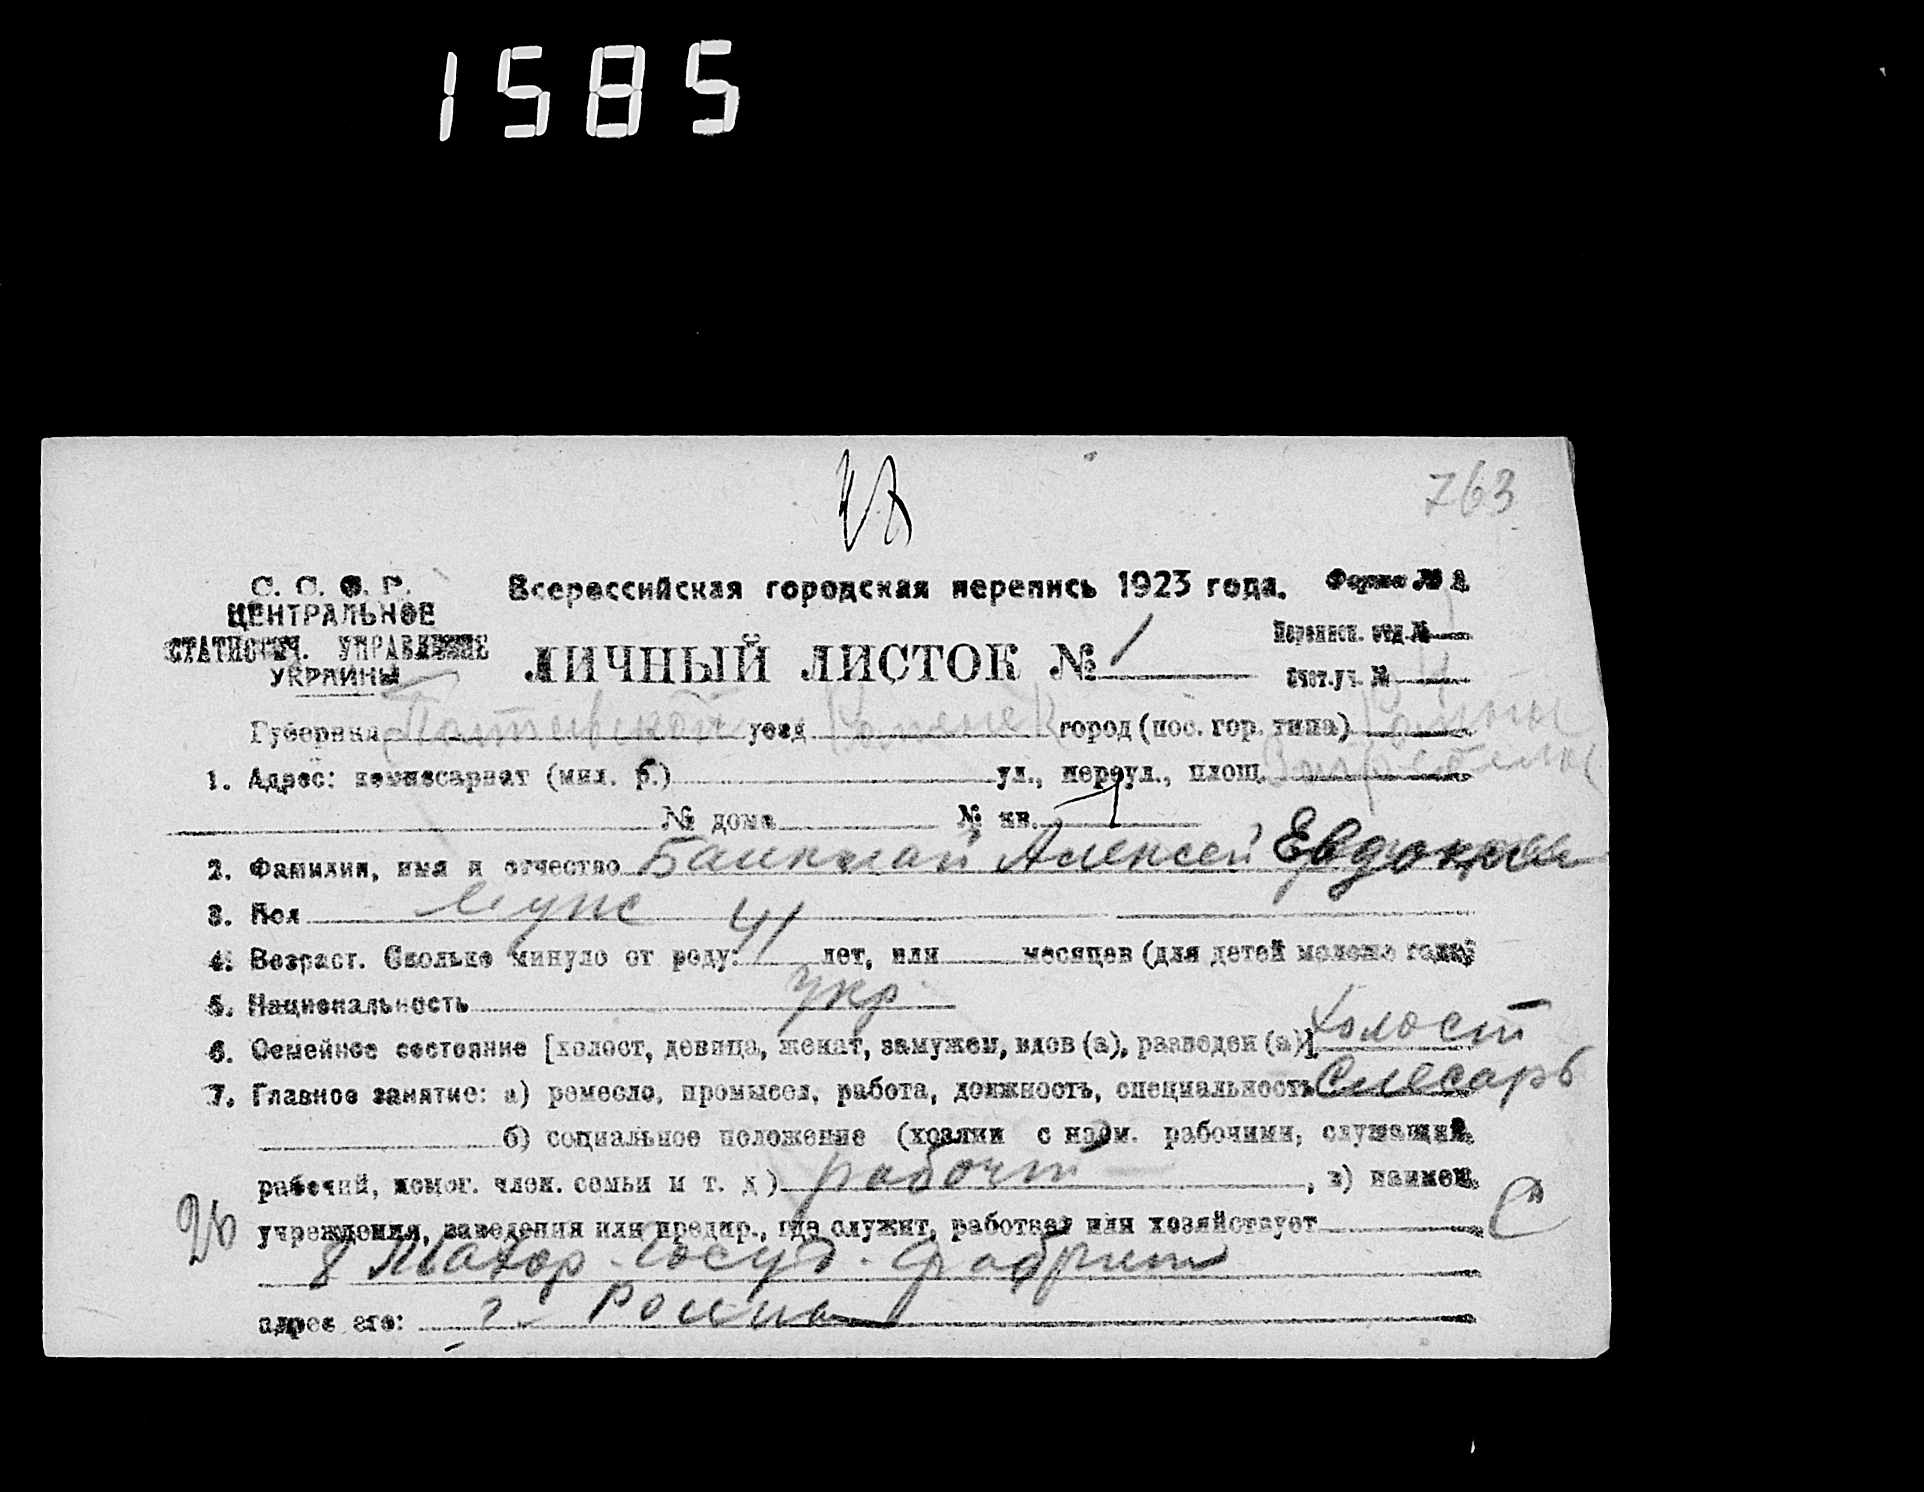 1585
763
С. С. Ф. Р.
ЦЕНТРАЛЬНОЕ
СТАТИСТИЧ. УПРАВЛЕНИЕ
УКРАИНЫ
Всероссийская городская перепись 1923 года.
Форма № 2
ЛИЧНЫЙ ЛИСТОК № 1
Переписн. отд. №
Счет. уч. №
Губерния Полтавской уезд Роменск город (пос. гор. типа) Ромны
1. Адрес: комиссариат (мил. р.) ул., переул., площ.
№ дома № кв.
2. Фамилия, имя и отчество Алексей Евдоким
3. Пол муж
4. Возраст. Сколько минуло от роду: 41 лет, или месяцев (для детей моложе года)
5. Национальность укр.
6. Семейное состояние [холост, девица, женат, замужем, вдов (а), разведен (а)] холост
7. Главное занятие: а) ремесло, промысел, работа, должность, специальность Слесарь
б) социальное положение (хозяин с наём. рабочими, служащий,
рабочий, помог. член. семьи и т. д.) рабочий, в) наимен.
26 учреждения, заведения или предпр., где служит, работает или хозяйствует С
8 Махор. Госуд. фабрики
адрес его: г. Ромны